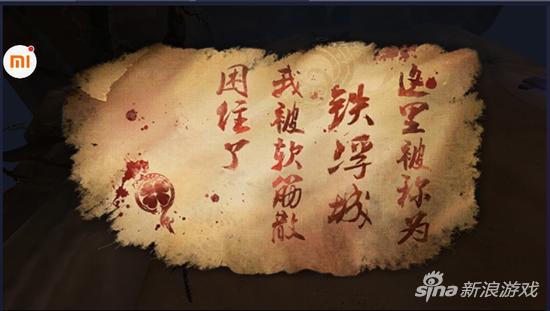 这里被称为
铁浮城
我被软筋散
困住了
mi
sina新浪游戏